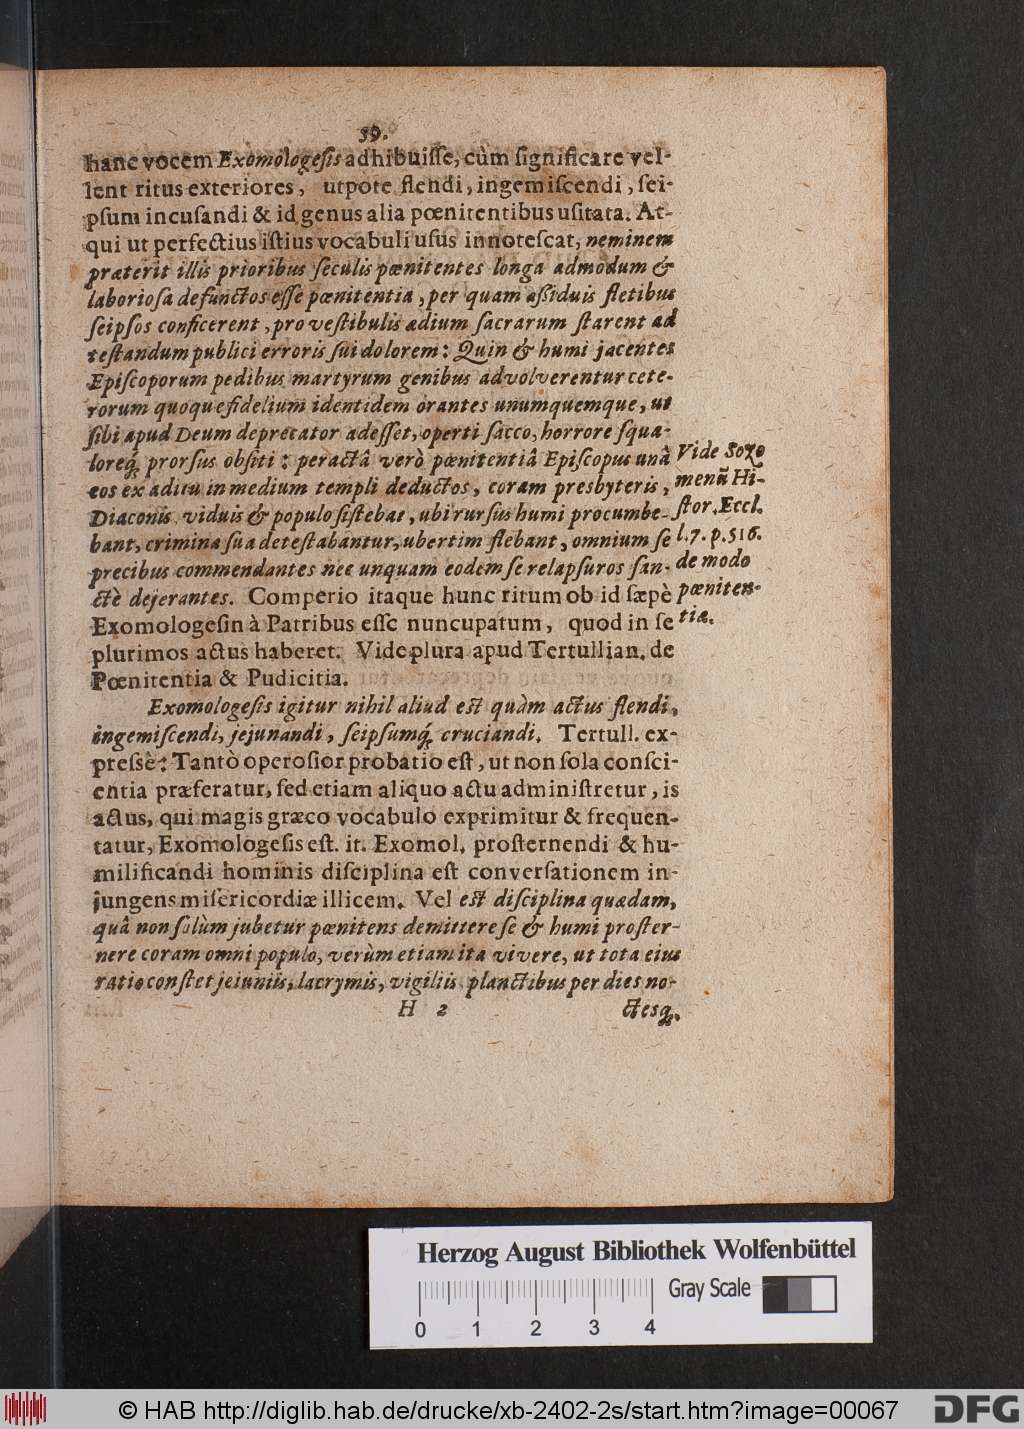 59.
hanc vocem Exomologesis adhibuisse, cùm significare vel-
lent ritus exteriores, utpote flendi, ingemiscendi, sei-
psum incusandi & id genus alia pœnitentibus usitata. At-
qui ut perfectius istius vocabuli usus innotescat, neminem
præterit illis prioribus seculis pœnitentes longa admodum &
laboriosa defunctos esse pœnitentia, per quam assiduis fletibus
seipsos conficerent, pro vestibulis ædium sacrarum starent ad
testandum publici erroris sui dolorem: Quin & humi jacentes
Episcoporum pedibus martyrum genibus advolverentur cete-
rorum quoque fidelium identidem orantes unumquemque, ut
sibi apud Deum deprecator adesset, operti sacco, horrore squa-
loreq́; prorsus obsiti: peractâ verò pœnitentiâ Episcopus unà
eos ex aditu in medium templi deductos, coram presbyteris,
Diaconis, viduis & populo sistebat, ubi rursus humi procumbe-
bant, crimina sua detestabantur, ubertim flebant, omnium se
precibus commendantes nec unquam eodem se relapsuros san-
ctè dejerantes. Comperio itaque hunc ritum ob id sæpè
Exomologesin à Patribus esse nuncupatum, quod in se
plurimos actus haberet. Vide plura apud Tertullian. de
Pœnitentia & Pudicitia.
Vide Sozo
menū Hi-
stor. Eccl.
l. 7. p. 516.
de modo
pœniten-
tiæ.
Exomologesis igitur nihil aliud est quàm actus flendi,
ingemiscendi, jejunandi, seipsumq́; cruciandi. Tertull. ex-
pressè: Tantò operosior probatio est, ut non sola consci-
entia præferatur, sed etiam aliquo actu administretur, is
actus, qui magis græco vocabulo exprimitur & frequen-
tatur, Exomologesis est. it. Exomol. prosternendi & hu-
milificandi hominis disciplina est conversationem in-
jungens misericordiæ illicem. Vel est disciplina quædam,
quâ non solùm jubetur pœnitens demittere se & humi proster-
nere coram omni populo, verùm etiam ita vivere, ut tota eius
ratio constet jeiuniis, lacrymis, vigiliis planctibus per dies no-
H 2 ctesq;
Herzog August Bibliothek Wolfenbüttel
Gray Scale
0 1 2 3 4
© HAB http://diglib.hab.de/drucke/xb-2402-2s/start.htm?image=00067
DFG